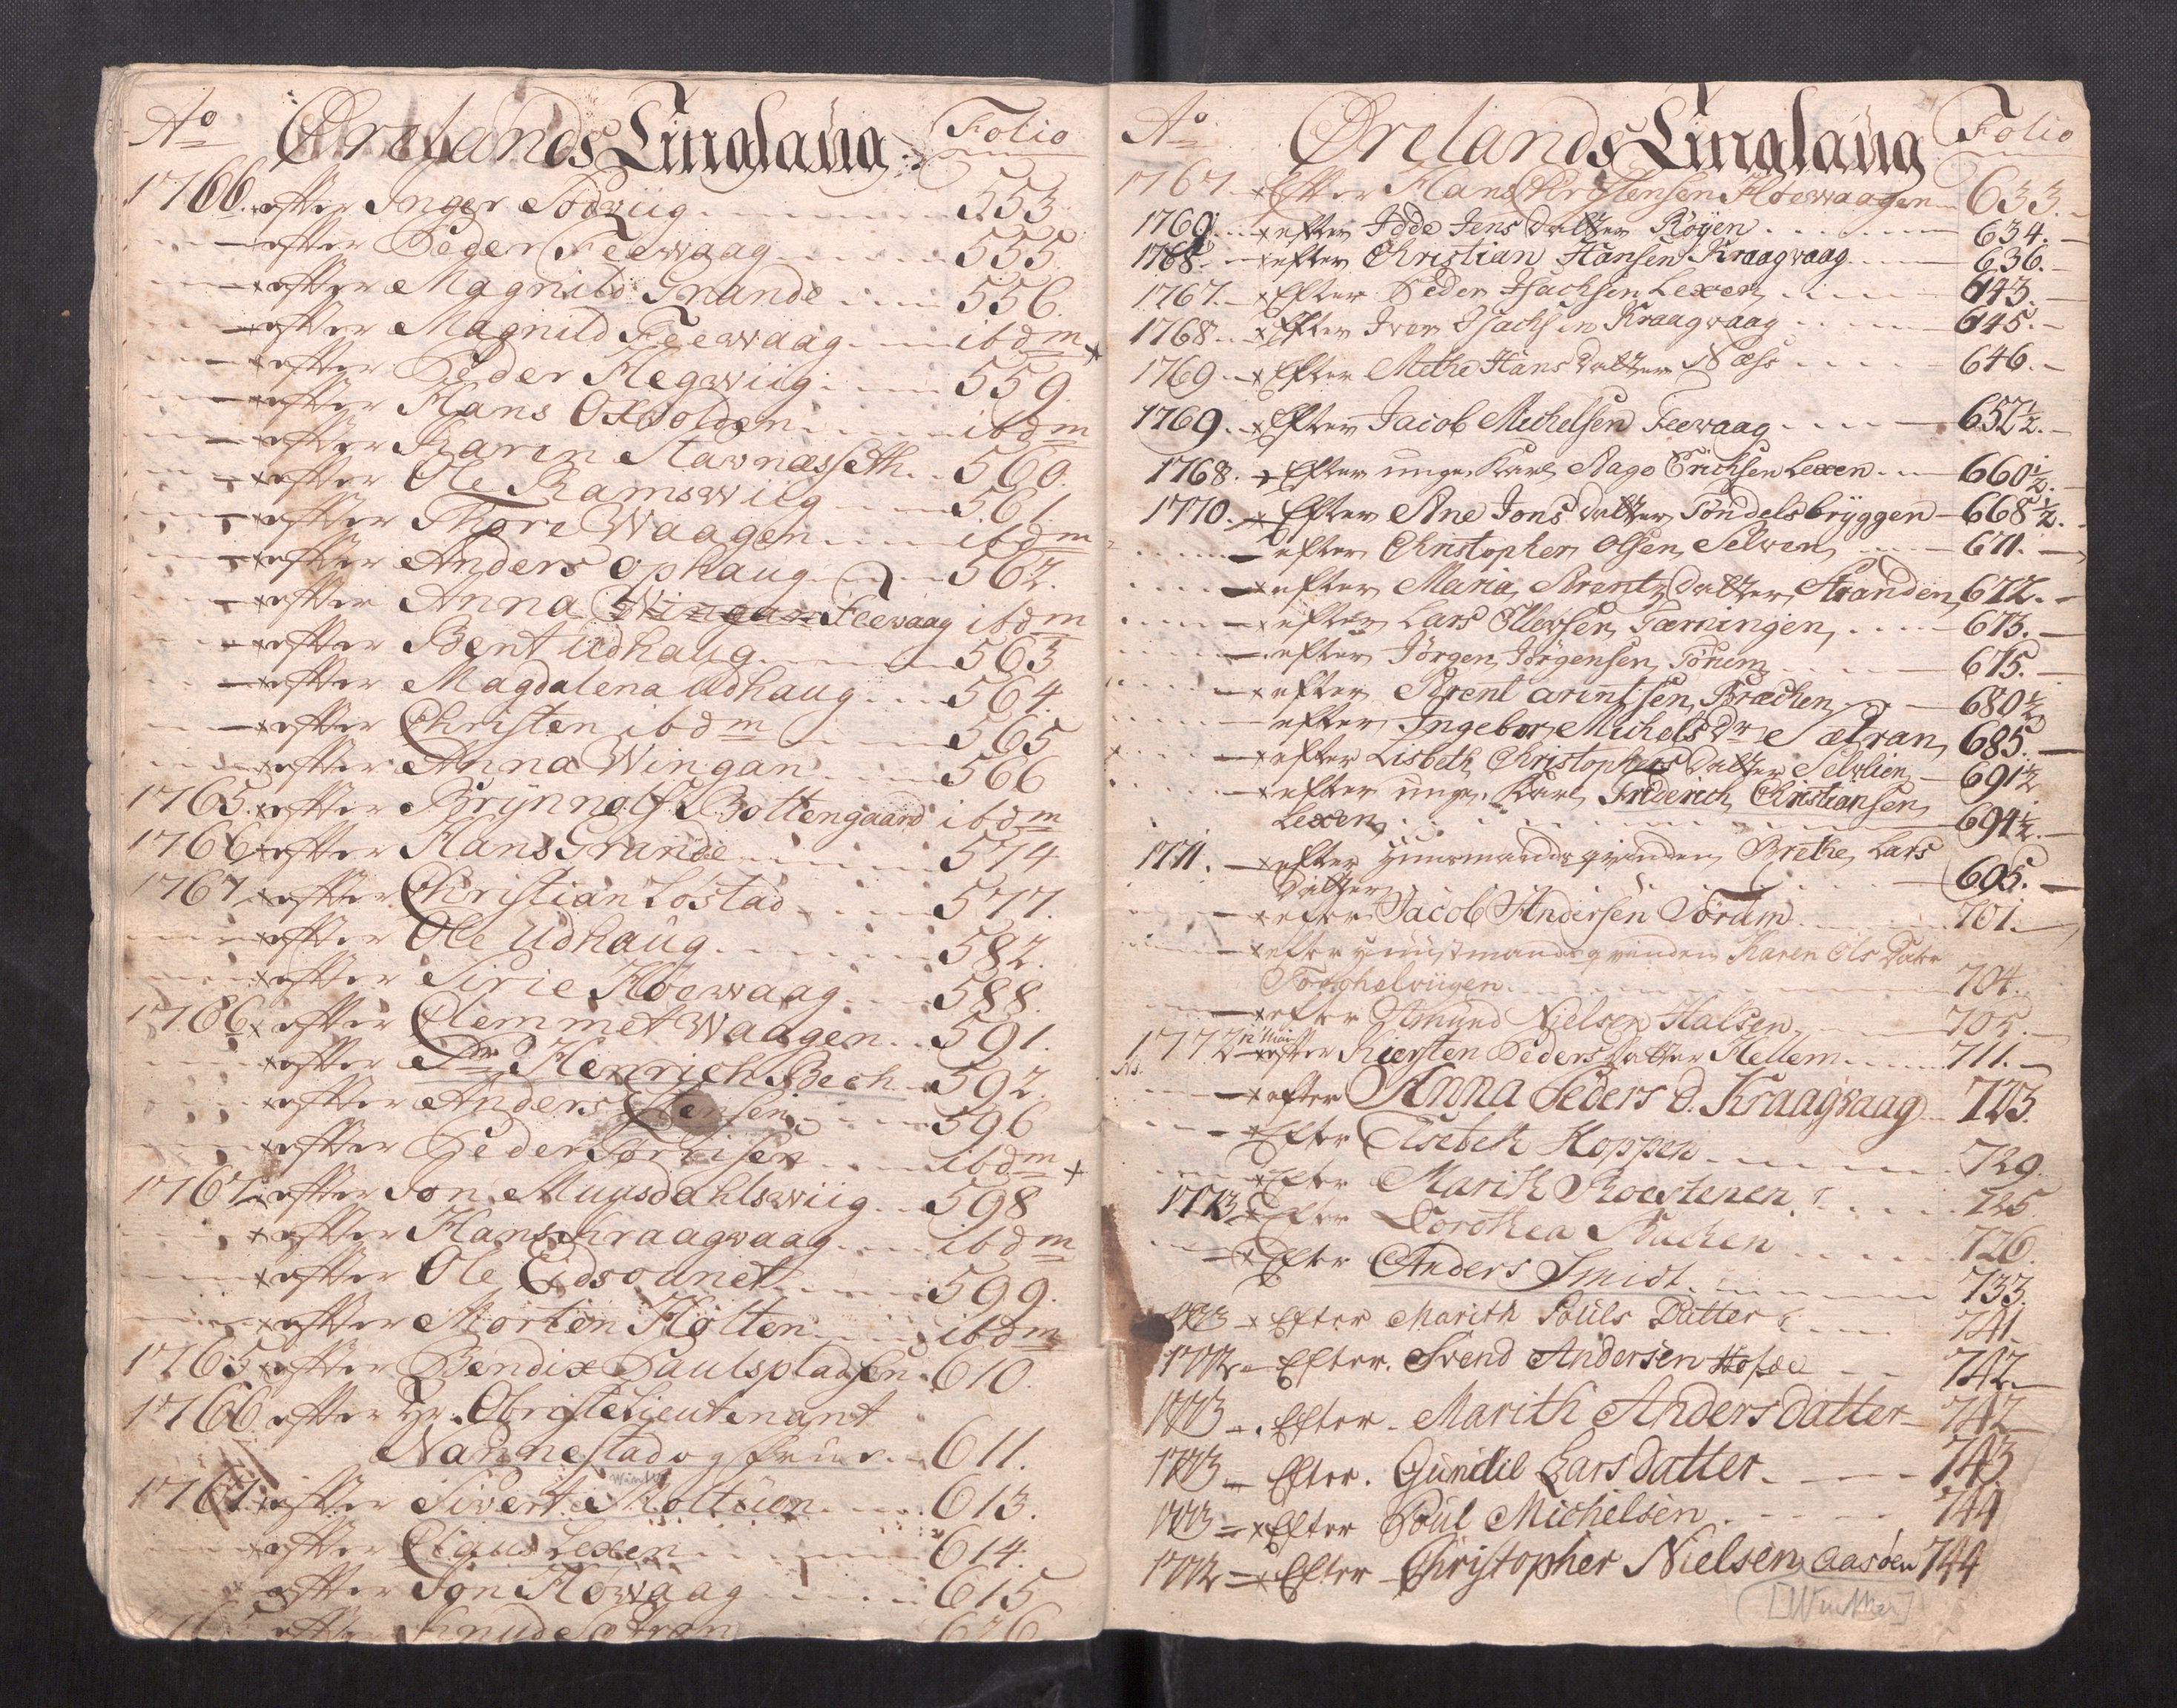 Ao Ørelands Tinglaug Folio
1766 efter Inger Sodviig 553
efter Peder Feewaag 555
efter Magnild Grande 556
efter Magnild Feewaag ibdm
efter Peder Hegwiig 559
efter Hans Oxvolden ibdm
efter Karen Stavnæsseth 560
efter Ole Ramswiig 561
efter Thore Waagen ibdm
efter Anders Ophaug 562
efter Anna Wingan Feevaag ibdm
efter Bent Udhaug 563
efter Magdalena Udhaug 564
efter Christen ibdm 565
efter Anna Wingan 566
1765 efter Brynnolf Bottengaard ibdm
1766 efter Hans Grande 574
1767 efter Christian Lostad 577
efter Ole Udhaug 582
efter Sirie Høewaag 588
1766 efter Clemmet Waagen 591
efter Henrich Bech 592
efter Anders Stensen 596
efter Peder ibdm
1767 efter Jon Muusdahlswiig 598
efter Hans Kraagvaag ibdm
efter Ole 599
efter Morten Holten ibdm
1765 efter Bendix Paulspladsen 610
1766 efter Hr. ObristeLieutenant
Nannestad og frue 611
1767 efter Sivert Moltuen 613
efter Claus Lexen 614
efter Jon Høwaag 615
efter Knud Sætran 626
Ao Ørelands Tinglaug Folio
1767 Efter Hans Christensen Høewaagen 633
1769 efter Jens Datter Røyen 634
1768 efter Christian Hansen Kraagvaag 636
1767 Efter Peder Isachsen Lexen 643
1768 Efter Iver Isachsen Kraagvaag 645
1769 Efter Methe Hans Datter Næss 646
1769 Efter Jacob Michelsen Feevaag 657½
1768 Efter unge Karl Aage Erichsen Lexen 660½
1770 Efter Ane Jons Datter Tøndelsbryggen 668½
efter Christopher Olsen Selven 671
efter Maria Arentz Datter Stranden 672
efter Lars Ellevsen Tærningen 673
efter Jørgen Jørgensen Sørum 675
efter Arent Arentsen Bræchen 680½
efter Ingebor Michels Dr Sætran 685
efter Lisbeth Christophers Datter Selvlien 691½
efter unge Karl Friderich Christiansen
Lexen 694½
1771 efter Huusmandsqvinden Brethe Lars
Datter 695
efter Jacob Andersen Sørum 701
efter Huusmandsqvinden Karen Ols Datr
704
efter Amund Nielsen Halsen 705
1772 efter Kiersten Peders Datter Hellem 711
efter Anna Peders d. Kraagvaag 723
Efter Elsebeth Hoppen 729
Efter Marith Roestenen 725
1773 Efter Dorothea Bachen 726
Efter Anders Smidt 733
1773 Efter Marith Pouls Datter 741
1772 Efter Svend Andersen 742
1773 Efter Marith Anders datter 742
1773 Efter Gunild Lars datter 743
1773 Efter Poul Michelsen 744
1772 Efter Christopher Nielsen Aasøen 744
[Winther]